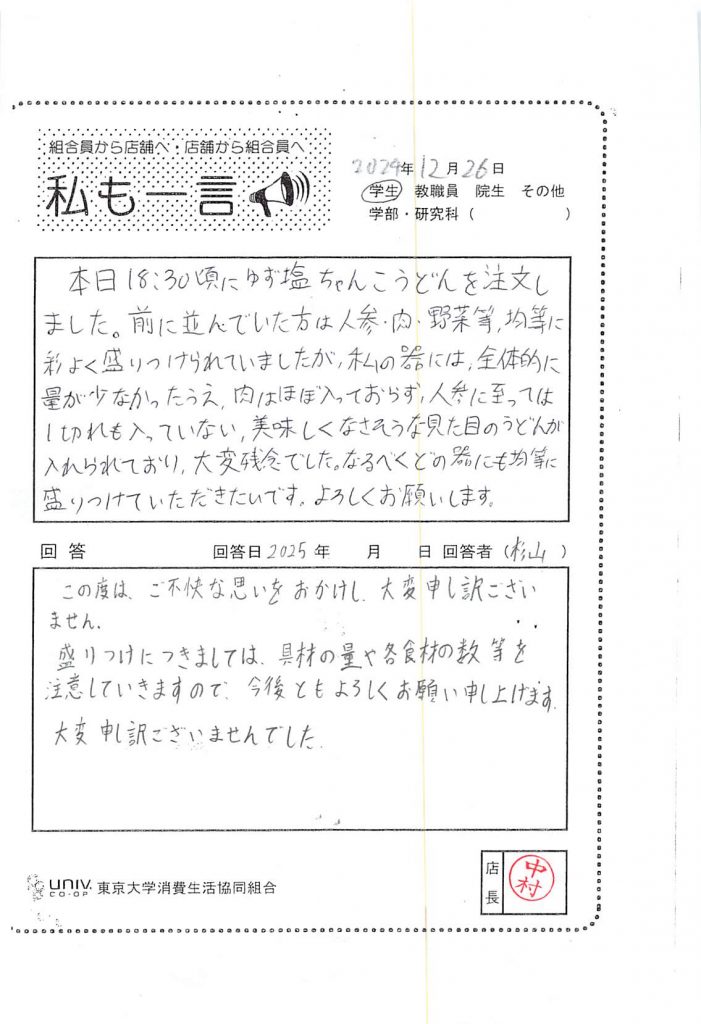 組合員から店舗へ・店舗から組合員へ
私も一言
2024年12月26日
学生 教職員 院生 その他
学部・研究科（ ）
本日18:30頃にゆず塩ちゃんこうどんを注文し
ました。前に並んでいた方は人参・肉・野菜等，均等に
彩よく盛りつけられていましたが，私の器には，全体的に
量が少なかったうえ，肉はほぼ入っておらず，人参に至っては
1切れも入っていない，美味しくなさそうな見た目のうどんが
入れられており，大変残念でした。なるべくどの器にも均等に
盛りつけていただきたいです。よろしくお願いします。
回答 回答日2025年 月 日 回答者（杉山）
この度は、ご不快な思いをおかけし、大変申し訳ござい
ません。
盛りつけにつきましては、具材の量や各食材の数等を
注意していきますので、今後ともよろしくお願い申し上げます。
大変申し訳ございませんでした。
UNIV.
CO-OP
東京大学消費生活協同組合
店長
中村